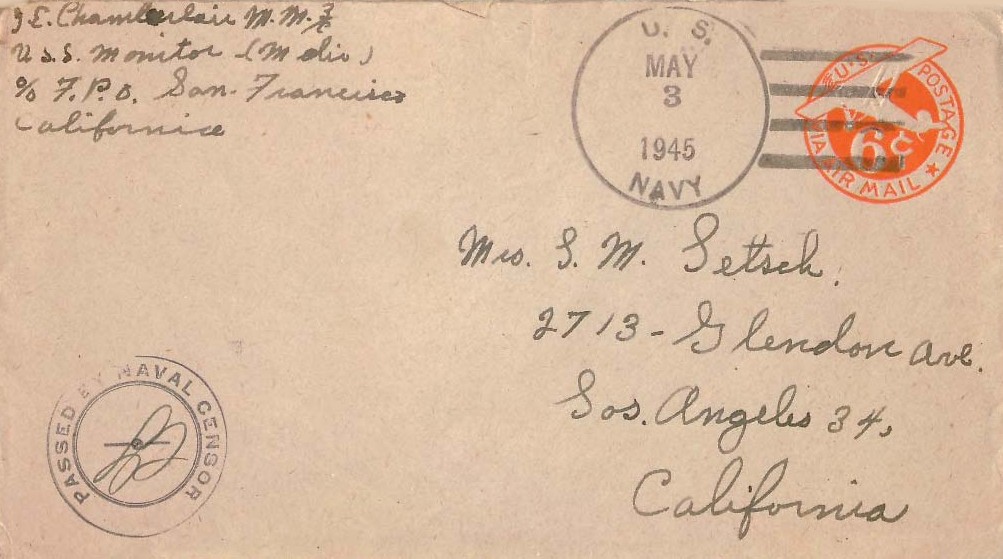 J E. Chamberlain M.M. 3/c
U.S.S. Monitor - (Medic)
c/o F.P.O. San-Francisco
California
U. S.
MAY
3
1945
NAVY
U.S. POSTAGE
VIA AIR MAIL
6c
Mrs. S. M. Setsch.
2713 - Glendon ave.
Los. Angeles 34,
California
PASSED BY NAVAL CENSOR